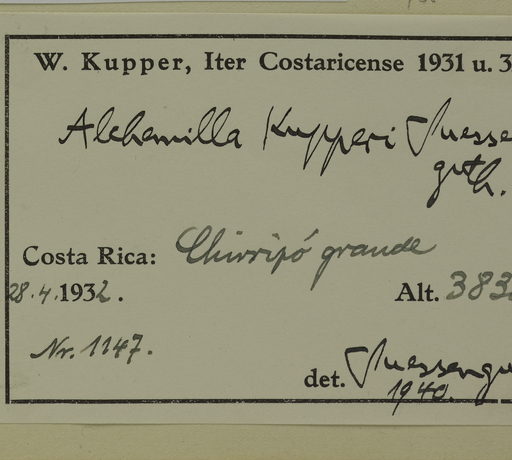 W. Kupper, Iter Costaricense 1931 u. 3
Alchemilla Kupperi Suessen
guth.
Costa Rica: Chirripó grande
28.4.1932. Alt. 383
Nr. 1147.
det. Suessengu
1940.